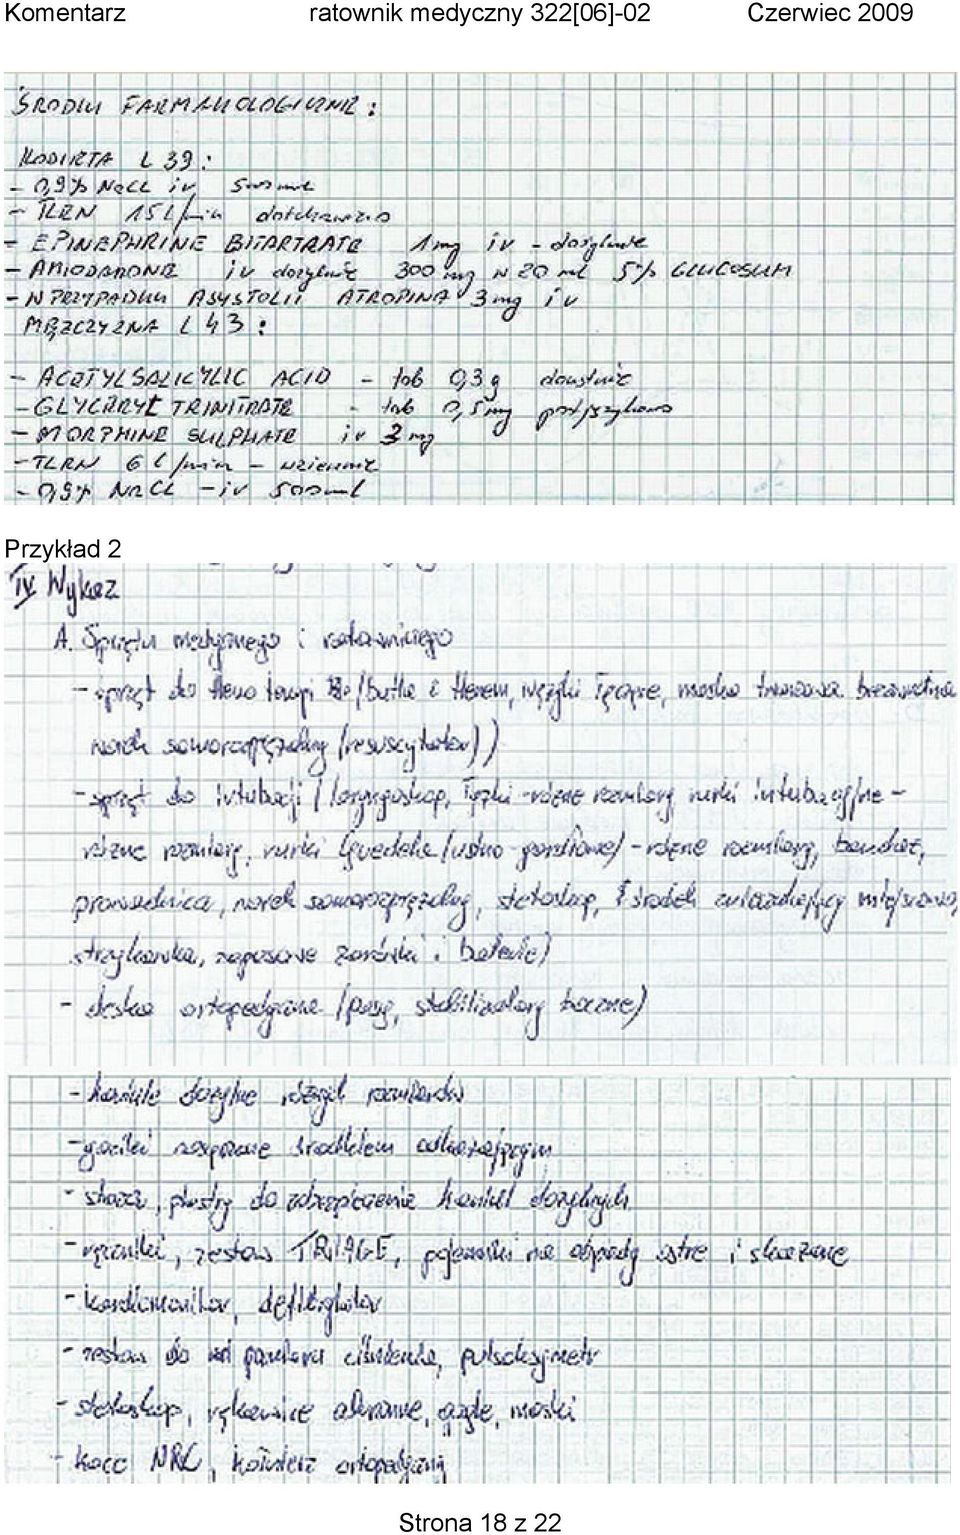 Komentarz ratownik medyczny 322[06]-02 Czerwiec 2009
ŚRODKI FARMAKOLOGICZNE :
KOBIETA L 39 :
- 0,9% NaCL iv 500 ml
- TLEN 15 l/min dotchawiczo
- EPINEPHRINE BITARTRATE 1mg iv - dożylnie
- AMIODARONE iv dożylnie 300 mg w 20 ml 5% GLUCOSUM
- W PRZYPADKU ASYSTOLII ATROPINA 3mg iv
MĘŻCZYZNA L 43 :
- ACETYLSALICYLIC ACID - tab 0,3g doustnie
- GLYCERYL TRINITRATE - tab 0,5mg podjęzykowo
- MORPHINE SULPHATE iv 3 mg
- TLEN 6 l/min -
- 0,9% NaCL - iv 500 ml
Przykład 2
IV Wykaz
A. Sprzętu medycznego i ratowniczego
- sprzęt do tleno terapi /butla z tlenem, wężyki łączące, maska twarzowa bezzwrotna
worek samorozprężalny /resuscytator/)
- sprzęt do intubacji / laryngoskop, łyżki - różne rozmiary, rurki intubacyjne -
różne rozmiary, rurki Guedela /ustno-gardłowe/ - różne rozmiary, bandaż,
prowadnica, worek samorozprężalny, stetoskop, środek znieczulający miejscowo,
strzykawka, zapasowe żarówki i baterie)
- deska ortopedyczna /pasy, stabilizatory boczne)
- kaniule dożylne różnych rozmiarów
- gaziki nasączone środkiem odkażającym
- staza, plastry do zabezpieczenia kaniul dożylnych
- ręczniki, zestaw TRIAGE, pojemniki na odpady ostre i skażone
- kardiomonitor, defibrylator
- zestaw do pomiaru ciśnienia, pulsoksymetr
- stetoskop, rękawice ochronne, gogle, maski
- koce NRC, kołnierz ortopedyczny
Strona 18 z 22